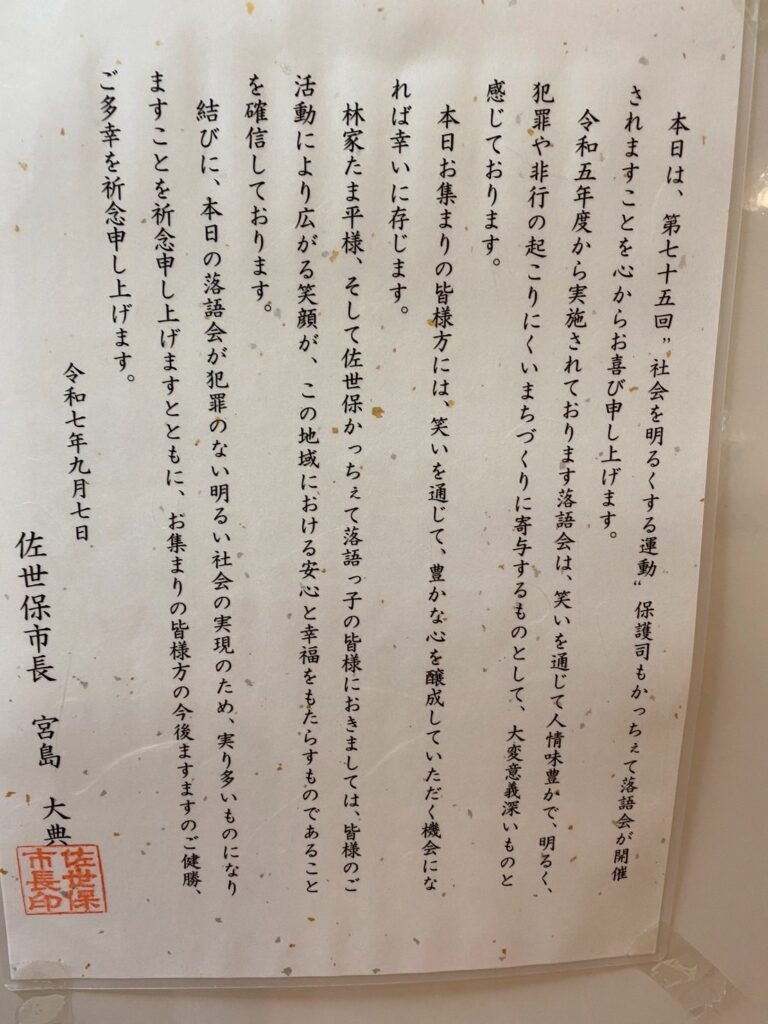 本日は、第七十五回”社会を明るくする運動“保護司もかっちぇて落語会が開催
されますことを心からお喜び申し上げます。
令和五年度から実施されております落語会は、笑いを通じて人情味豊かで、明るく、
犯罪や非行の起こりにくいまちづくりに寄与するものとして、大変意義深いものと
感じております。
本日お集まりの皆様方には、笑いを通じて、豊かな心を醸成していただく機会にな
れば幸いに存じます。
林家たま平様、そして佐世保かっちぇて落語っ子の皆様におきましては、皆様のご
活動により広がる笑顔が、この地域における安心と幸福をもたらすものであること
を確信しております。
結びに、本日の落語会が犯罪のない明るい社会の実現のため、実り多いものになり
ますことを祈念申し上げますとともに、お集まりの皆様方の今後ますますのご健勝、
ご多幸を祈念申し上げます。
令和七年九月七日
佐世保市長　宮島　大典
佐世保
市長印